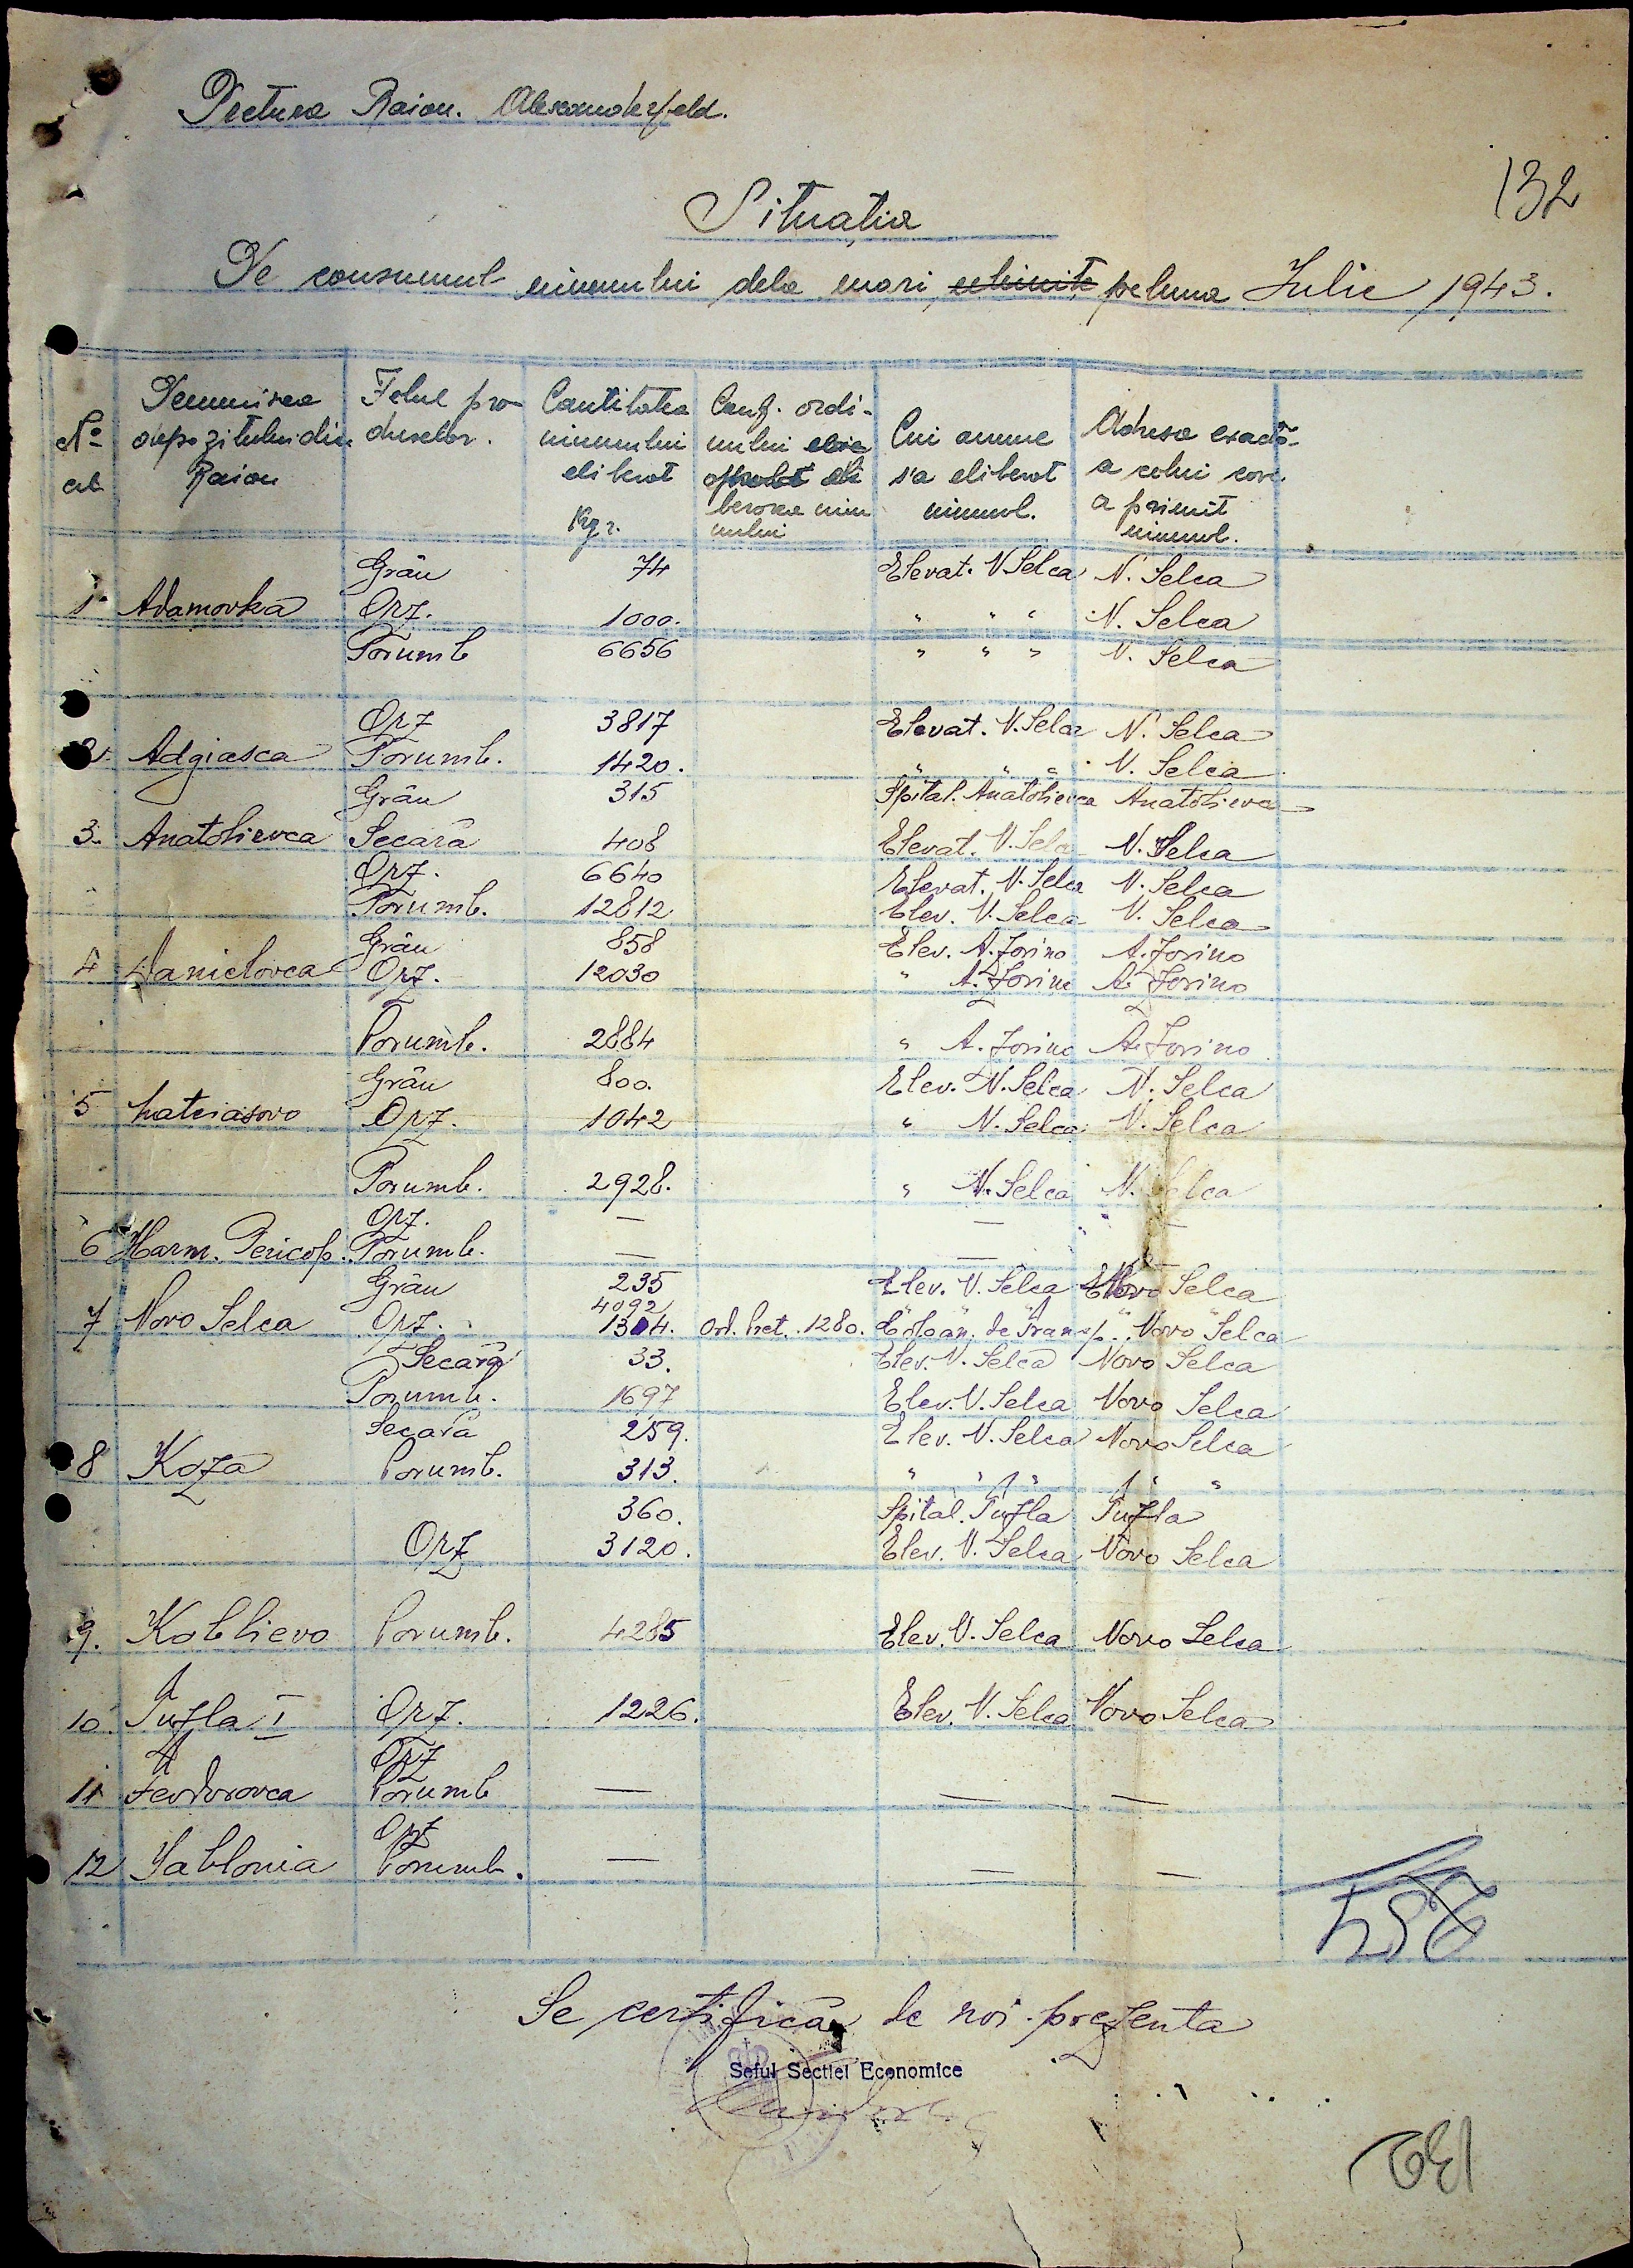 Pretura Raion. Alexanderfeld.
132
Situația
De consumul uiumului dela mori, pe luna Julie 1943.
No crt | Denumirea depozitului din Raion | Felul produselor. | Cantitatea uiumului eliberat Kgr. | Conf. ordinului uiumului | Cui anume s'a eliberat uiumul. | Adresa exactă a celui care a primit uiumul.
Grâu 74 Elevat. N Selca N. Selca
1. Adamovka Orz. 1000. " " " N. Selca
Porumb 6656 " " " N. Selca
Orz 3817 Elevat. N. Selca N. Selca
2. Adgiasca Porumb. 1420. " " " N. Selca
Grâu 315 Spital. Anatolievca Anatolievca
3. Anatolievca Secară 408 Elevat. N. Selca N. Selca
Orz. 6640 Elevat. N. Selca N. Selca
Porumb. 12812 Elev. N. Selca N. Selca
Grâu 858 Elev. A. Zorino A. Zorino
4 Danielovca Orz. 12030 " A. Zorino A. Zorino
Porumb. 2884 " A. Zorino A. Zorino
Grâu 800. Elev. N. Selca N. Selca
5 Matciasovo Orz. 1042 " N. Selca N. Selca
Porumb. 2928. " N. Selca N. Selca
Orz. — — —
6 Harm. Pericop. Porumb. — —
Grâu 235 Elev. N. Selca Novo Selca
4092 " " " " "
7 Novo Selca Orz. 1304. Ord. Pret. 1280. Coloan. de Transp. Novo Selca
Secară 33. Elev. N. Selca Novo Selca
Porumb. 1697 Elev. N. Selca Novo Selca
Secară 259. Elev. N. Selca Novo Selca
8 Koza Porumb. 313. " " " " "
360. Spital. Tuzla Tuzla
Orz 3120. Elev. N. Selca Novo Selca
9. Koblievo Porumb. 4285 Elev. N. Selca Novo Selca
10. Tuzla I Orz. 1226. Elev. N. Selca Novo Selca
Orz
11 Feodorovca Porumb — — —
Orz
12 Iablonia Porumb. — — —
Se certifică de noi prezenta
Seful Sectiei Economice
132